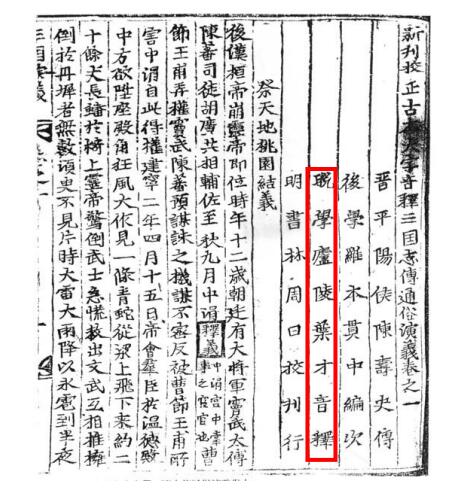 新刊校正古本大字音釋三国志傳通俗演義卷之一
晋平陽侯陳壽史傳
後學羅本貫中編次
晚學廬陵葉才音釋
明書林周曰校刊行
祭天地桃園結義
後漢桓帝崩靈帝即位時年十二歲朝廷有大將軍竇武太傅
陳蕃司徒胡廣共相輔佐至秋九月中涓釋義中涓宫中之宦官也曹
節王甫弄權竇武陳蕃預謀誅之機謀不密反被曹節王甫所
害中涓自此得權建寧二年四月十五日帝會羣臣於温德殿
中方欲陞座殿角狂風大作見一條青蛇從梁上飛下來約二
十餘丈長蟠於椅上靈帝驚倒武士急慌救出文武互相推擁
倒於丹墀者無數須臾不見片時大雷大雨降以氷雹到半夜